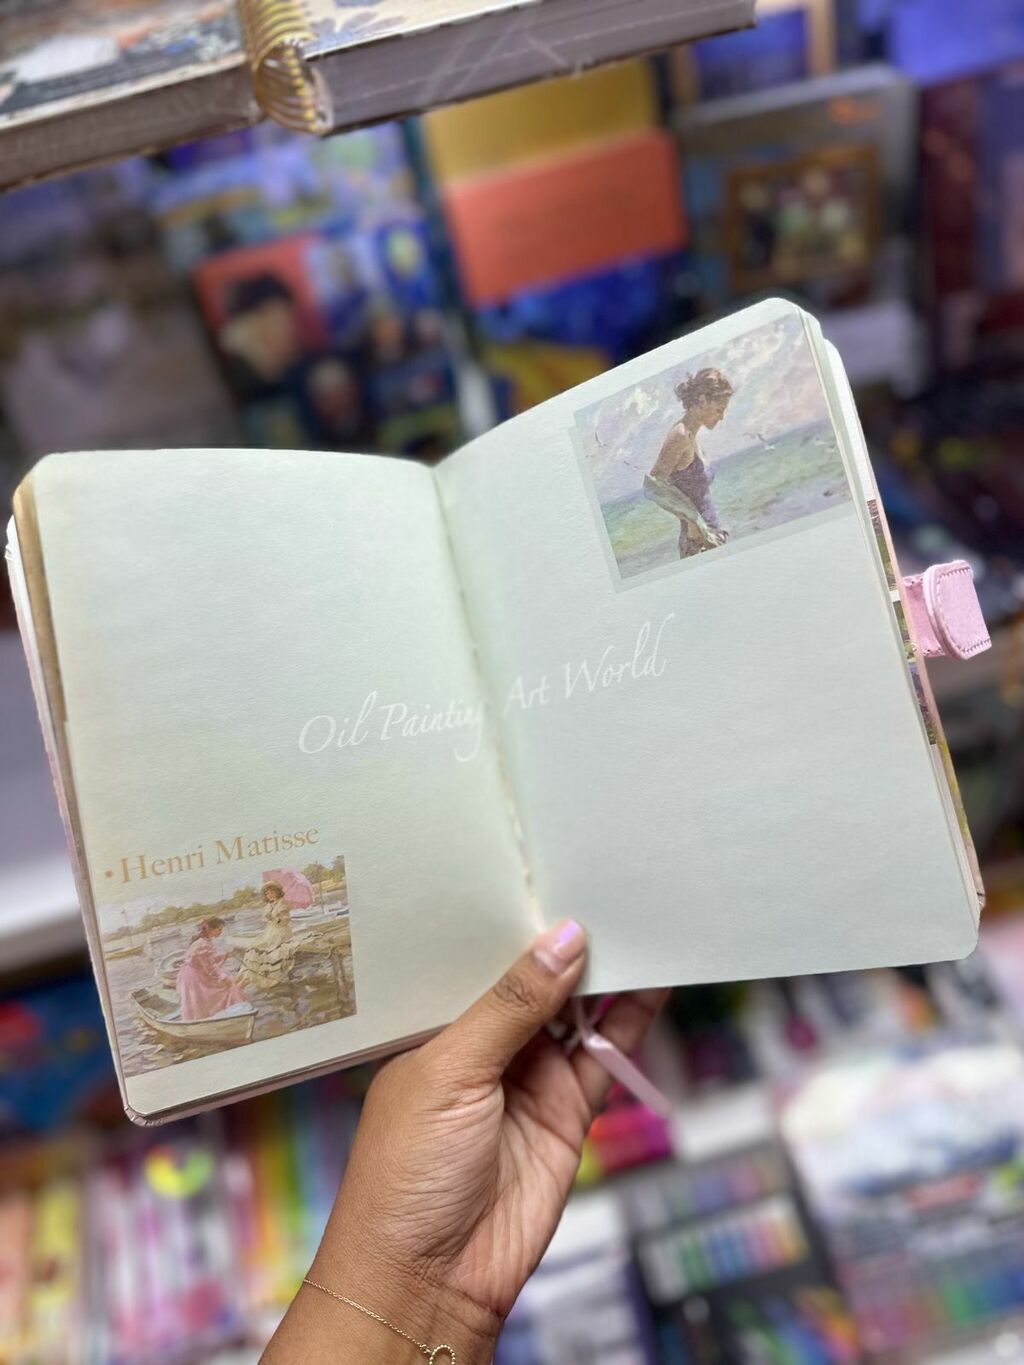 Oil Painting Art World
• Henri Matisse